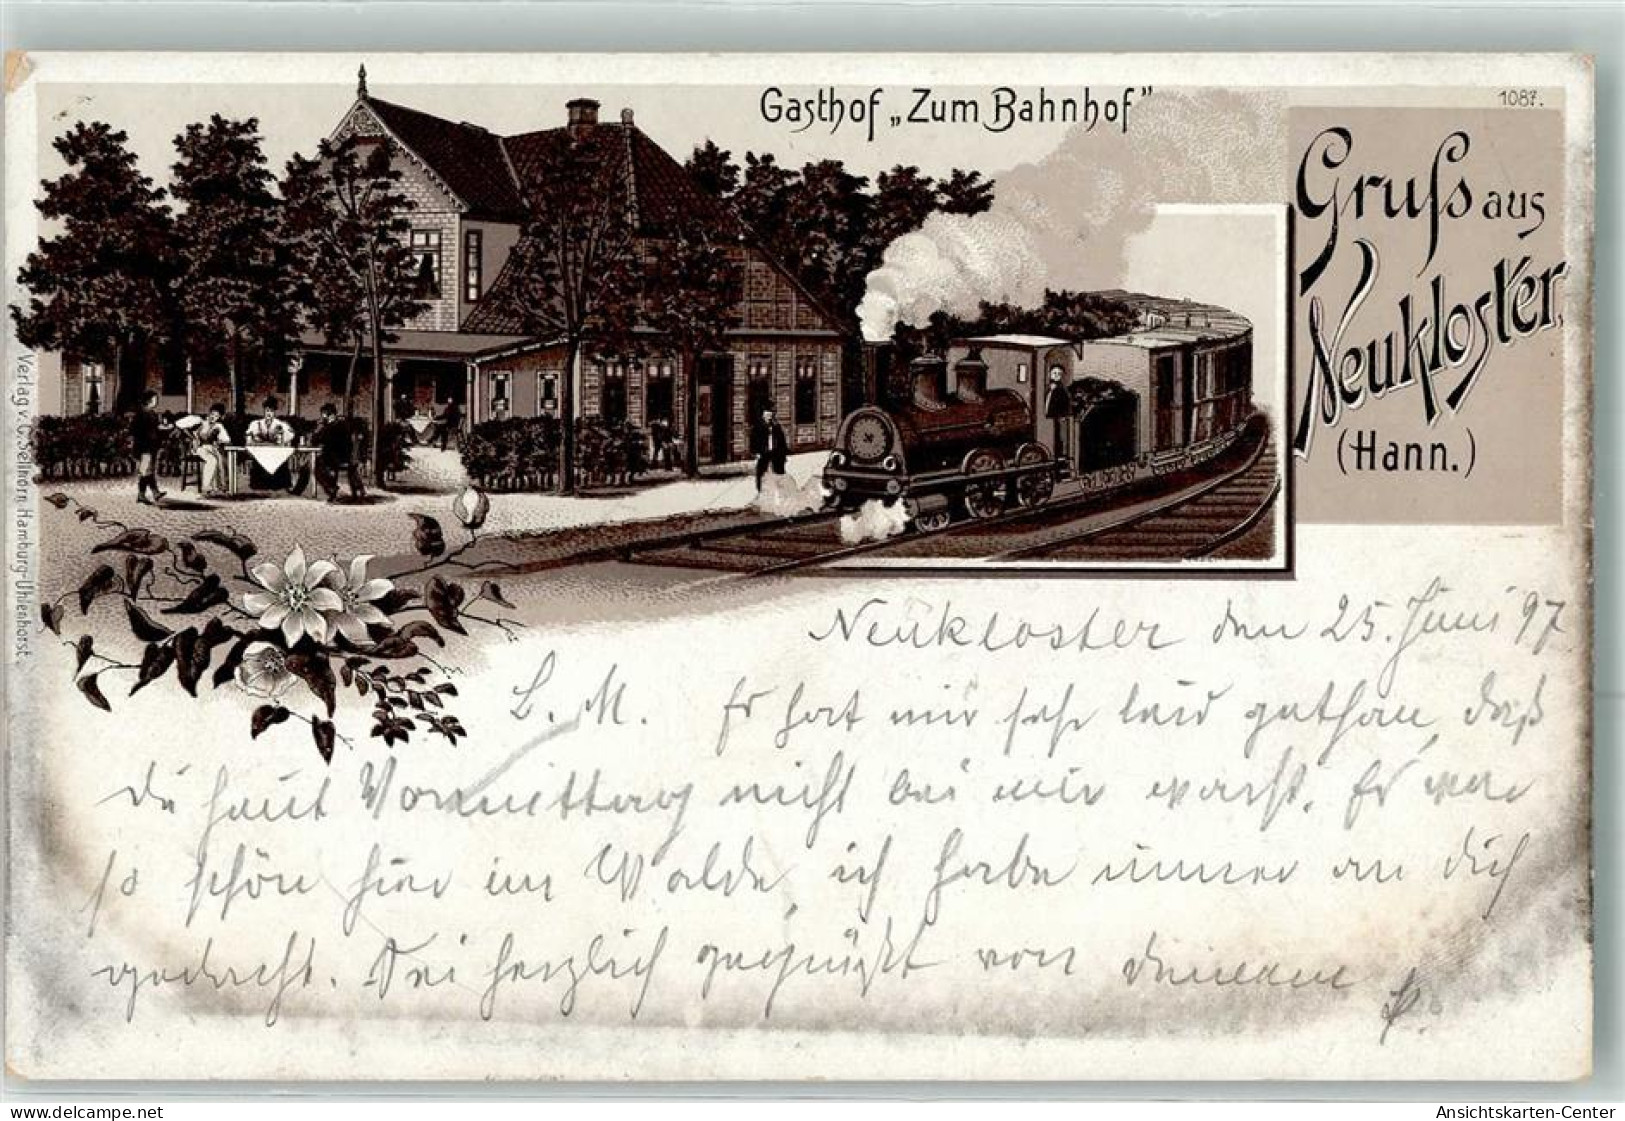 Gasthof „Zum Bahnhof"
1087.
Gruſs aus
Neukloster
(Hann.)
Verlag v. G. Sellhorn Hamburg-Uhlenhorst.
Neukloster den 25. Juni 97
L. M. Es hat mir sehr leid gethan, daß
du heut Vormittag nicht bei mir warst. Es war
so schön hier im Walde, ich habe immer an Dich
gedacht. Sei herzlich gegrüßt von deinem
delcampe.net
Ansichtskarten-Center